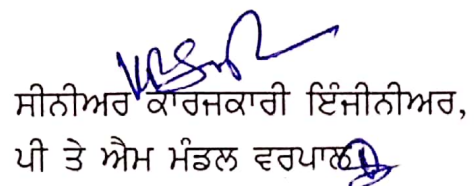 ਸੀਨੀਅਰ ਕਾਰਜਕਾਰੀ ਇੰਜੀਨੀਅਰ,
ਪੀ ਤੇ ਐਮ ਮੰਡਲ ਵਰਪਾਲ